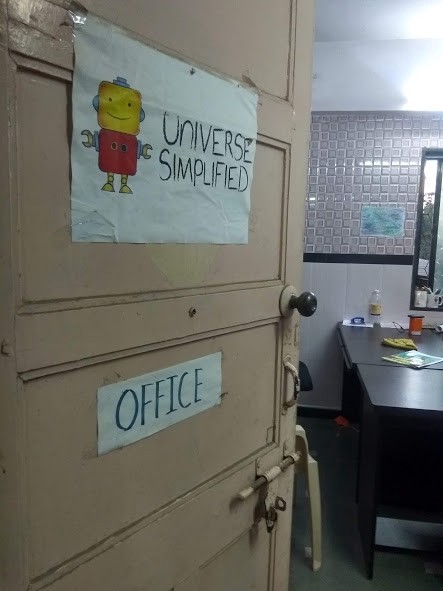 UNIVERSE
SIMPLIFIED
OFFICE